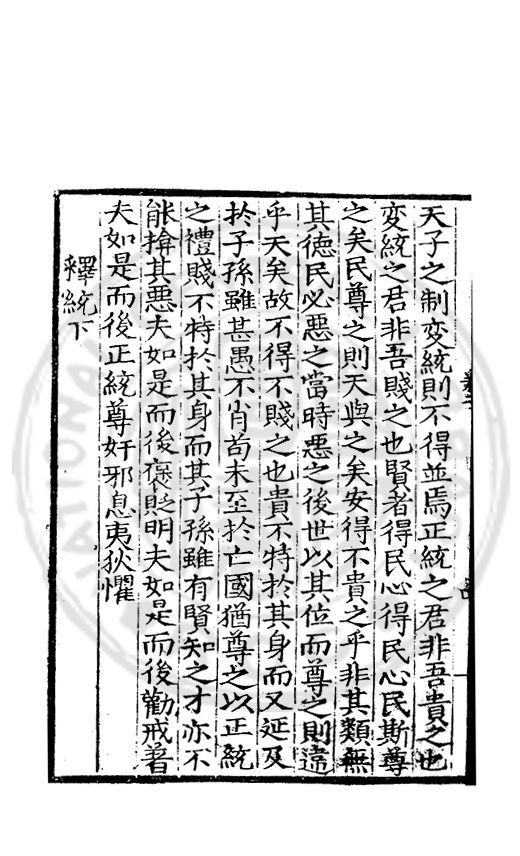 天子之制變統則不得並焉正統之君非吾貴之也
変統之君非吾賤之也賢者得民心得民心民斯尊
之矣民尊之則天與之矣安得不貴之乎非其類無
其徳民必惡之當時惡之後世以其位而尊之則違
乎天矣故不得不賤之也貴不特於其身而又延及
於子孫雖甚愚不肖苟未至於亡國猶尊之以正統
之禮賤不特於其身而其子孫雖有賢知之才亦不
能揜其惡夫如是而後褒貶明夫如是而後勸戒著
夫如是而後正統尊奸邪息夷狄懼
釋統下